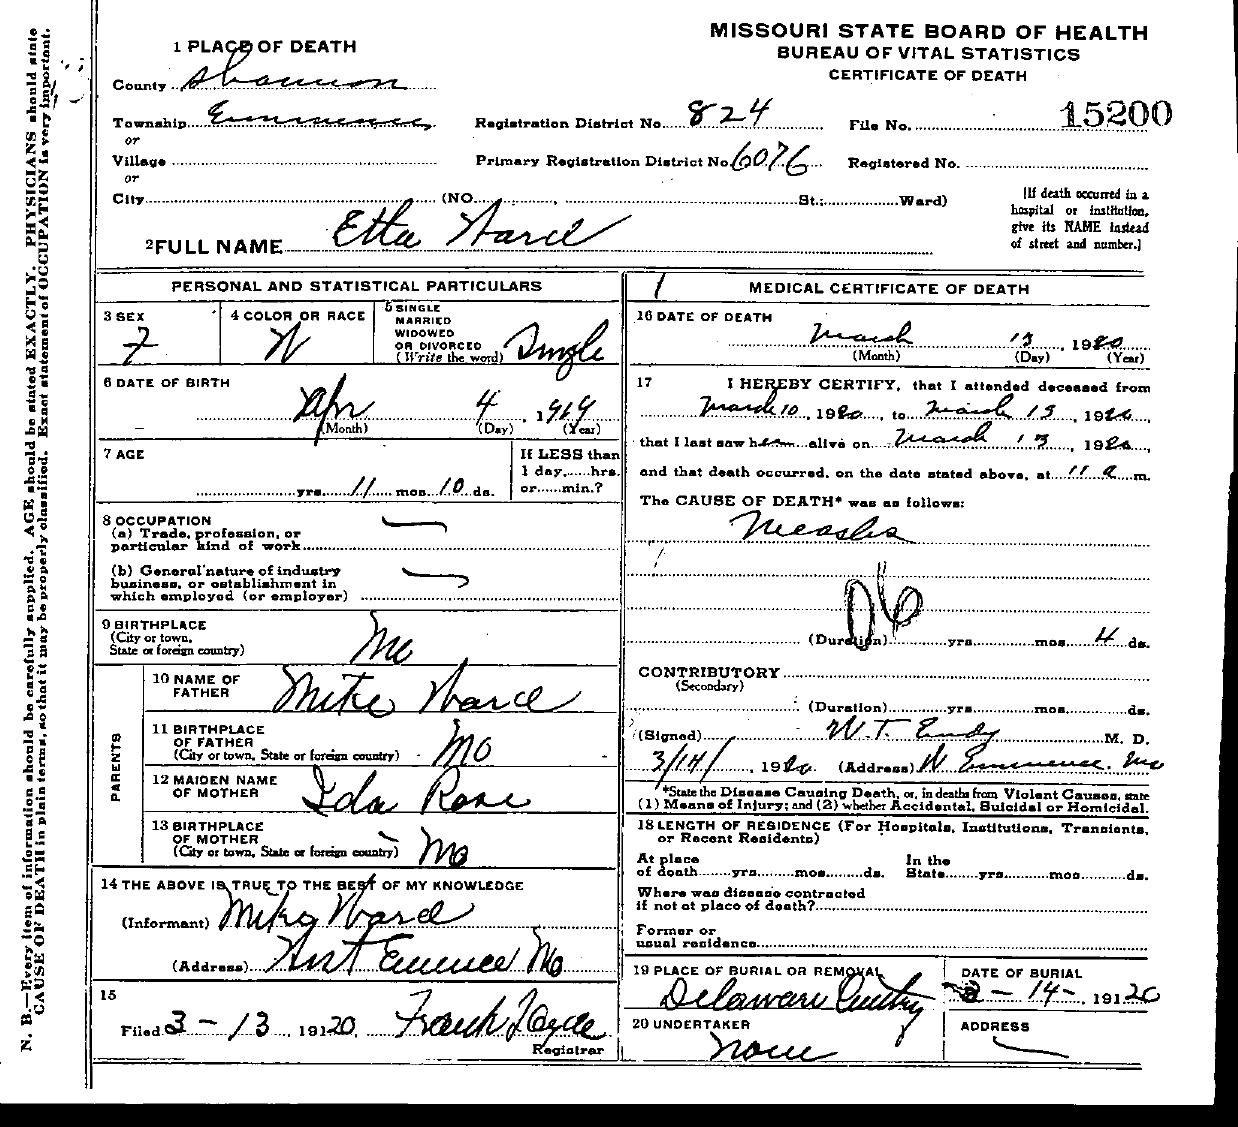 MISSOURI STATE BOARD OF HEALTH
BUREAU OF VITAL STATISTICS
CERTIFICATE OF DEATH
1 PLACE OF DEATH
County Shannon
Township Eminence Registration District No. 824 File No. 15200
or
Village Primary Registration District No. 6076 Registered No.
or
City (NO. , St.; Ward)
[If death occurred in a hospital or institution, give its NAME instead of street and number.]
2 FULL NAME Etta Ward
PERSONAL AND STATISTICAL PARTICULARS
3 SEX F
4 COLOR OR RACE W
5 SINGLE MARRIED WIDOWED OR DIVORCED (Write the word) Single
6 DATE OF BIRTH
Apr 4, 1919
(Month) (Day) (Year)
7 AGE
yrs. 11 mos. 10 ds.
If LESS than
1 day,......hrs.
or......min.?
8 OCCUPATION
(a) Trade, profession, or
particular kind of work
(b) General nature of industry
business, or establishment in
which employed (or employer)
9 BIRTHPLACE
(City or town,
State or foreign country) Mo
PARENTS
10 NAME OF FATHER Mike Ward
11 BIRTHPLACE OF FATHER
(City or town, State or foreign country) Mo
12 MAIDEN NAME OF MOTHER Ida
13 BIRTHPLACE OF MOTHER
(City or town, State or foreign country) Mo
14 THE ABOVE IS TRUE TO THE BEST OF MY KNOWLEDGE
(Informant) Mike Ward
(Address) West Eminence Mo
15
Filed 3-13, 19120 Frank Hyde
Registrar
MEDICAL CERTIFICATE OF DEATH
16 DATE OF DEATH
March 13, 1920
(Month) (Day) (Year)
17 I HEREBY CERTIFY, that I attended deceased from
March 10, 1920, to March 13, 1920
that I last saw her alive on March 13, 1920,
and that death occurred, on the date stated above, at 11 a m.
The CAUSE OF DEATH* was as follows:
Measles
06
(Duration) yrs. mos. 4 ds.
CONTRIBUTORY
(Secondary)
(Duration) yrs. mos. ds.
(Signed) W. T. Eudy M. D.
3/14/, 1920 (Address) W Eminence, Mo
*State the Disease Causing Death, or, in deaths from Violent Causes, state
(1) Means of Injury; and (2) whether Accidental, Suicidal or Homicidal.
18 LENGTH OF RESIDENCE (For Hospitals, Institutions, Transients,
or Recent Residents)
At place In the
of death......yrs......mos......ds. State......yrs......mos......ds.
Where was disease contracted
if not at place of death?
Former or
usual residence
19 PLACE OF BURIAL OR REMOVAL DATE OF BURIAL
Delaware 3-14-, 19120
20 UNDERTAKER ADDRESS
None
N. B.—Every item of information should be carefully supplied. AGE should be stated EXACTLY. PHYSICIANS should state
CAUSE OF DEATH in plain terms, so that it may be properly classified. Exact statement of OCCUPATION is very important.